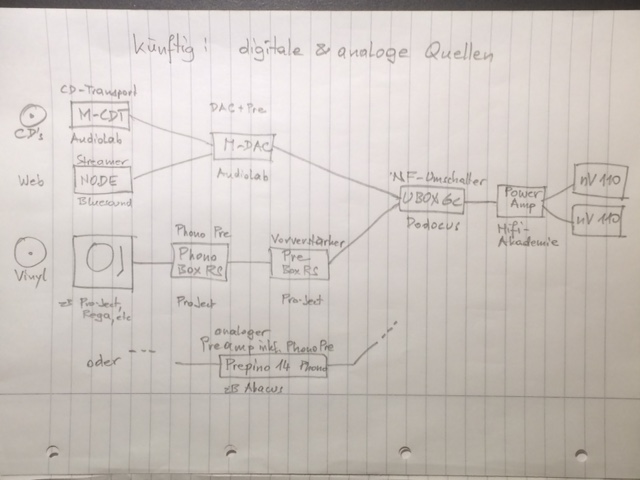 künftig: digitale & analoge Quellen
CD-Transport
M-CDT
CD's
AudioLab
DAC + Pre
M-DAC
AudioLab
Streamer
Web
NODE
Bluesound
NF-Umschalter
UBOX 6c
Dodocus
Power
Amp
Hifi-
Akademie
nV 110
nV 110
Vinyl
zB Pro-Ject,
Rega, etc
Phono Pre
Phono
Box RS
Pro-Ject
Vorverstärker
Pre
Box RS
Pro-Ject
oder
analoger
Preamp inkl. Phono Pre
Prepino 14 Phono
zB Abacus